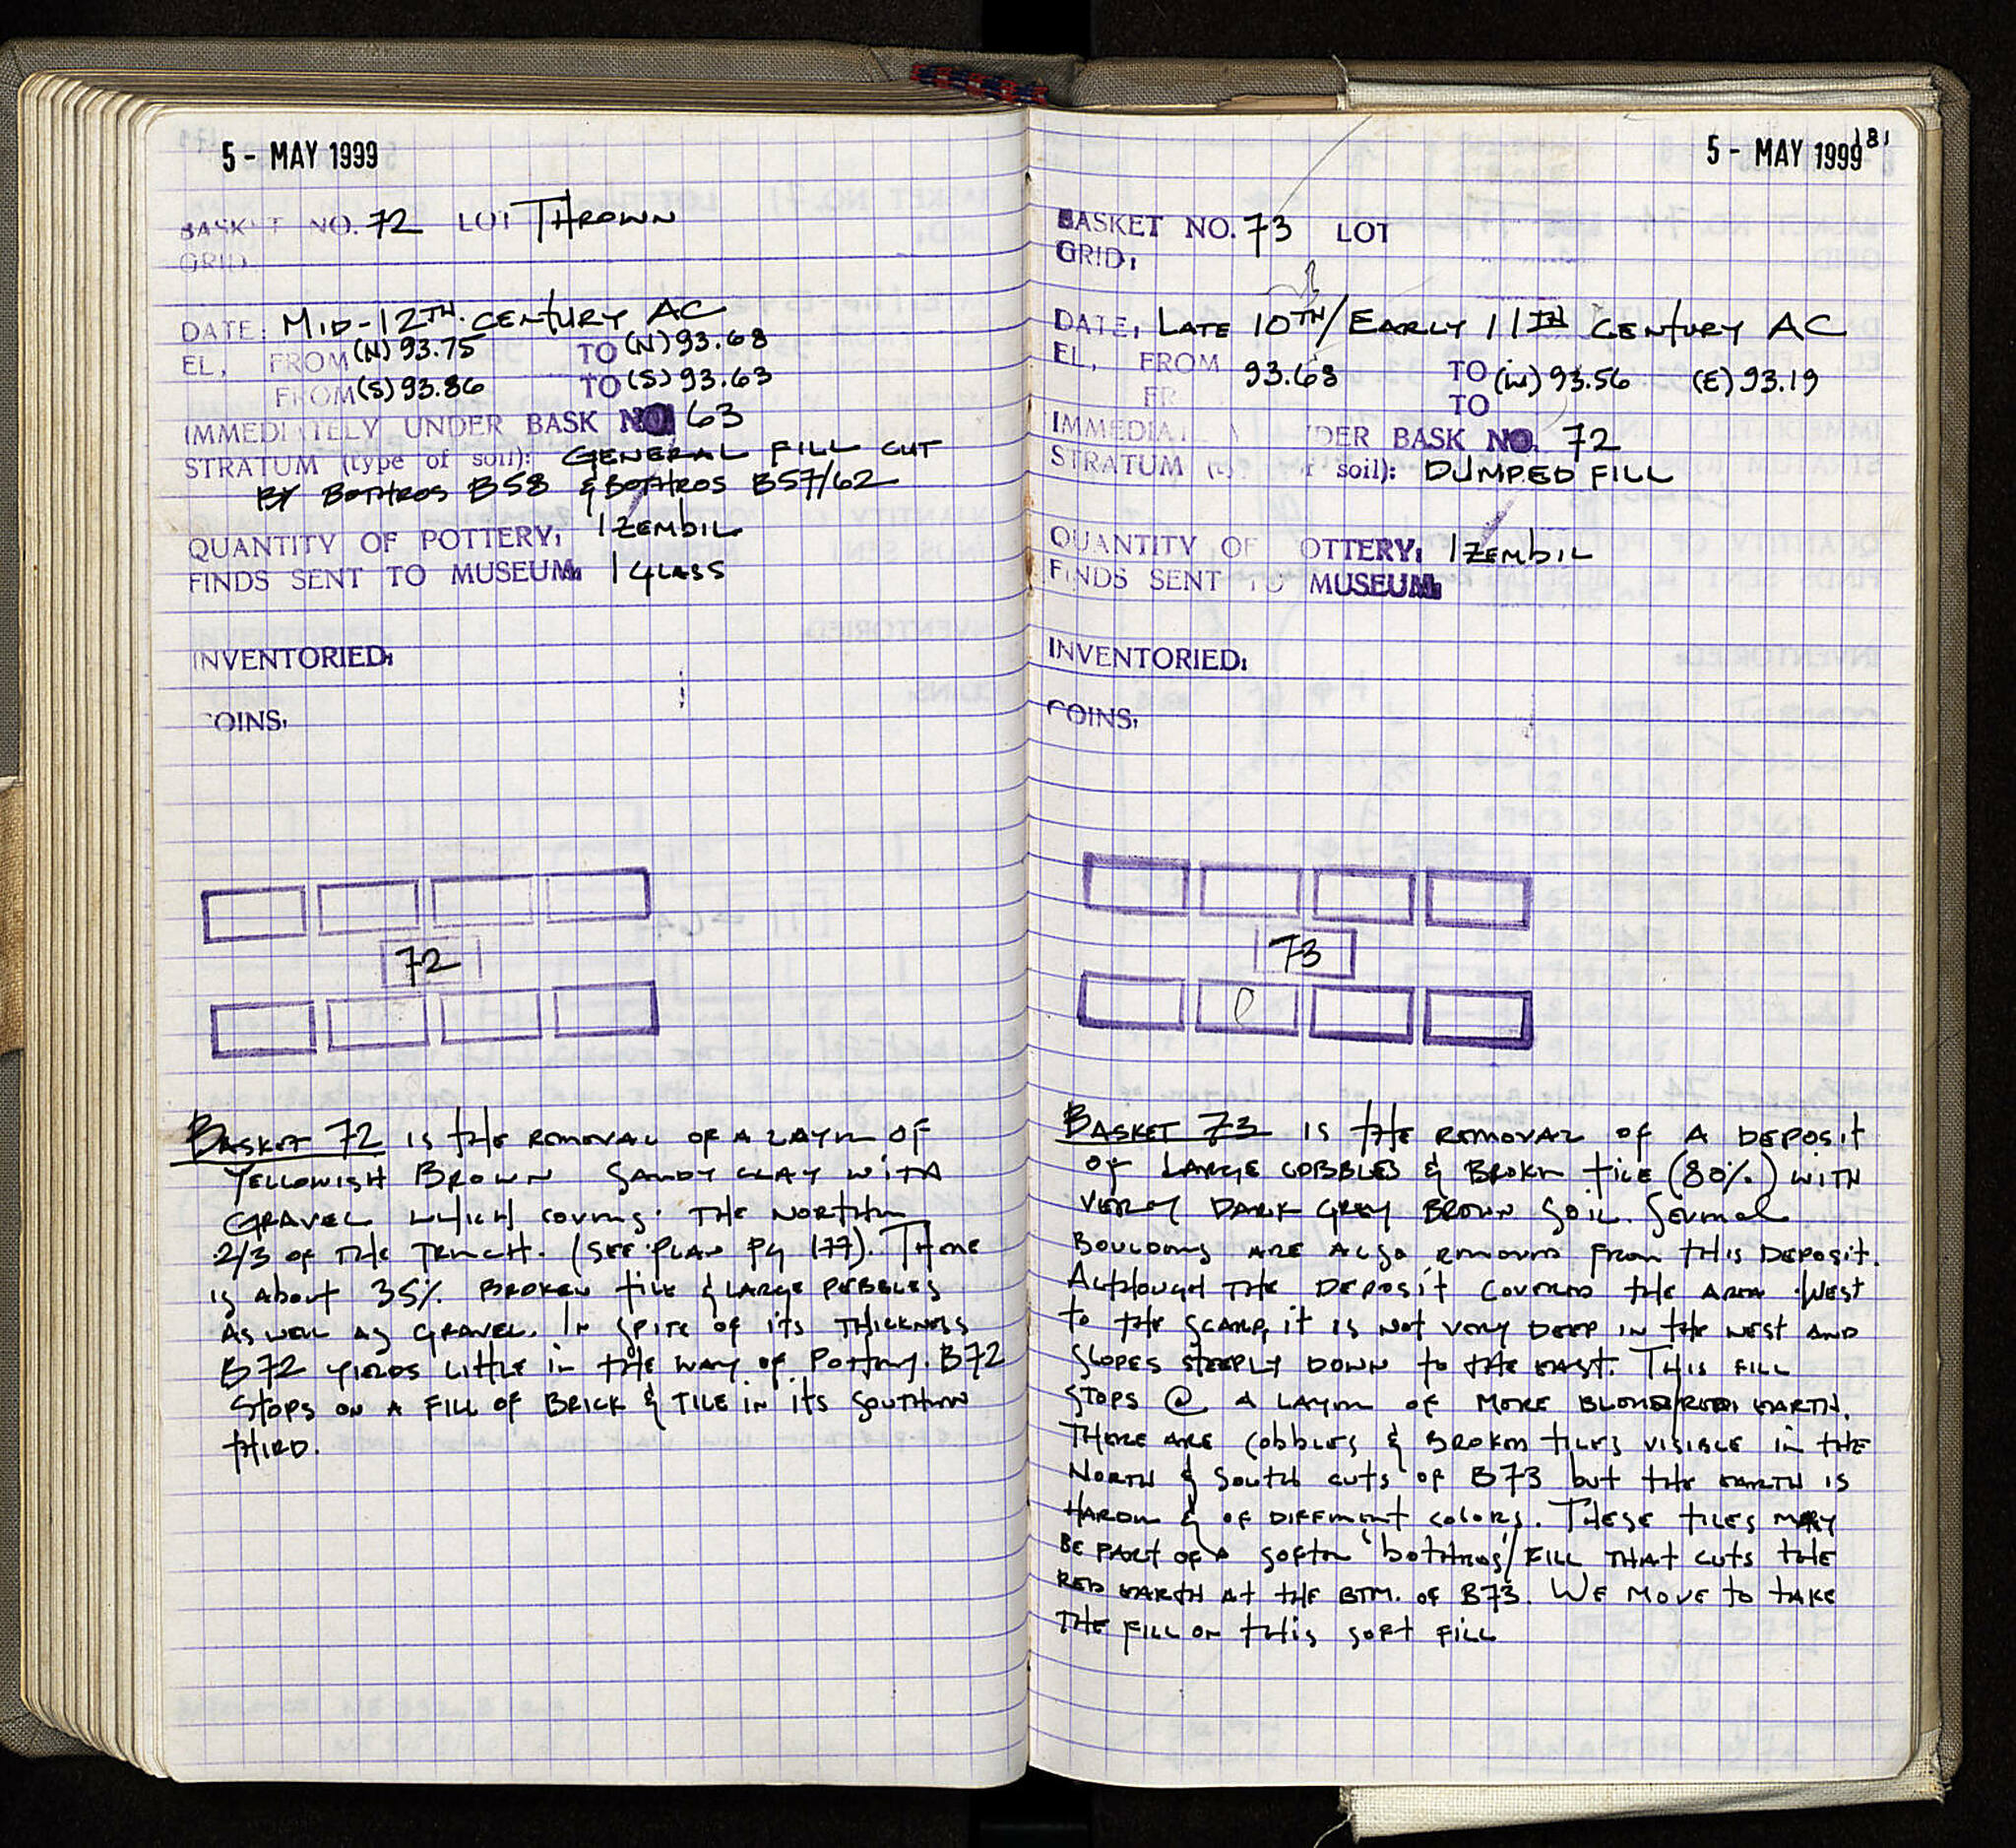 5 - MAY 1999
BASKET NO. 72 LOT THROWN
GRID
DATE: MID-12TH. CENTURY AC
EL, FROM (N) 93.75 TO (N) 93.68
FROM (S) 93.86 TO (S) 93.63
IMMEDIATELY UNDER BASK NO. 63
STRATUM (type of soil): GENERAL FILL CUT
BY BOTHROS B58 & BOTHROS B57/62
QUANTITY OF POTTERY: 1 ZEMBIL
FINDS SENT TO MUSEUM: 1 GLASS
INVENTORIED:
COINS:
72
BASKET 72 IS THE REMOVAL OF A LAYER OF
YELLOWISH BROWN SANDY CLAY WITH
GRAVEL WHICH COVERS THE NORTHERN
2/3 OF THE TRENCH. (SEE PLAN PG 177). THERE
IS ABOUT 35% BROKEN TILE & LARGE PEBBLES
AS WELL AS GRAVEL. IN SPITE OF ITS THICKNESS
B72 YIELDS LITTLE IN THE WAY OF POTTERY. B72
STOPS ON A FILL OF BRICK & TILE IN ITS SOUTHERN
THIRD.
5 - MAY 1999 181
BASKET NO. 73 LOT
GRID:
DATE, LATE 10TH/EARLY 11TH CENTURY AC
EL, FROM 93.68 TO (W) 93.56 (E) 93.19
FR TO
IMMEDIA DER BASK NO. 72
STRATUM (ty f soil): DUMPED FILL
QUANTITY OF OTTERY: 1 ZEMBIL
FINDS SENT TO MUSEUM:
INVENTORIED:
COINS:
73
BASKET 73 IS THE REMOVAL OF A DEPOSIT
OF LARGE COBBLES & BROKEN TILE (80%) WITH
VERY DARK GREY BROWN SOIL. SEVERAL
BOULDERS ARE ALSO REMOVED FROM THIS DEPOSIT.
ALTHOUGH THE DEPOSIT COVERED THE AREA WEST
TO THE SCARP, IT IS NOT VERY DEEP IN THE WEST AND
SLOPES STEEPLY DOWN TO THE EAST. THIS FILL
STOPS @ A LAYER OF MORE EARTH.
THERE ARE COBBLES & BROKEN TILES VISIBLE IN THE
NORTH & SOUTH CUTS OF B73 BUT THE EARTH IS
HARDER & OF DIFFERENT COLORS. THESE TILES MAY
BE PART OF A SOFTER 'BOTHROS'/FILL THAT CUTS THE
RED EARTH AT THE BTM. OF B73. WE MOVE TO TAKE
THE FILL OR THIS SOFT FILL